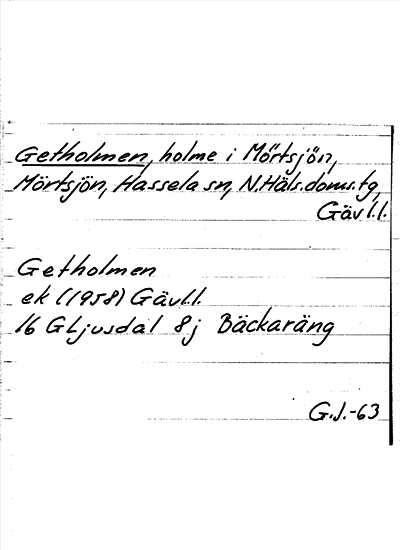 Getholmen, holme i Mörtsjön,
Mörtsjön, Hassela sn, N.Häls.doms.tg,
Gävl.l.
Getholmen
ek (1958) Gävl.l.
16 G Ljusdal 8j Bäckaräng
G.J.-63